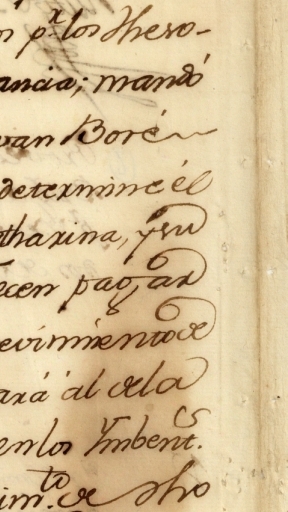 n p.r los Theso-
ancia; mandó
van Boré
determine él
tharina, y su
ecen pagar
evimiento de
ará ál de la
en los Ymbent.s
im.to de dho